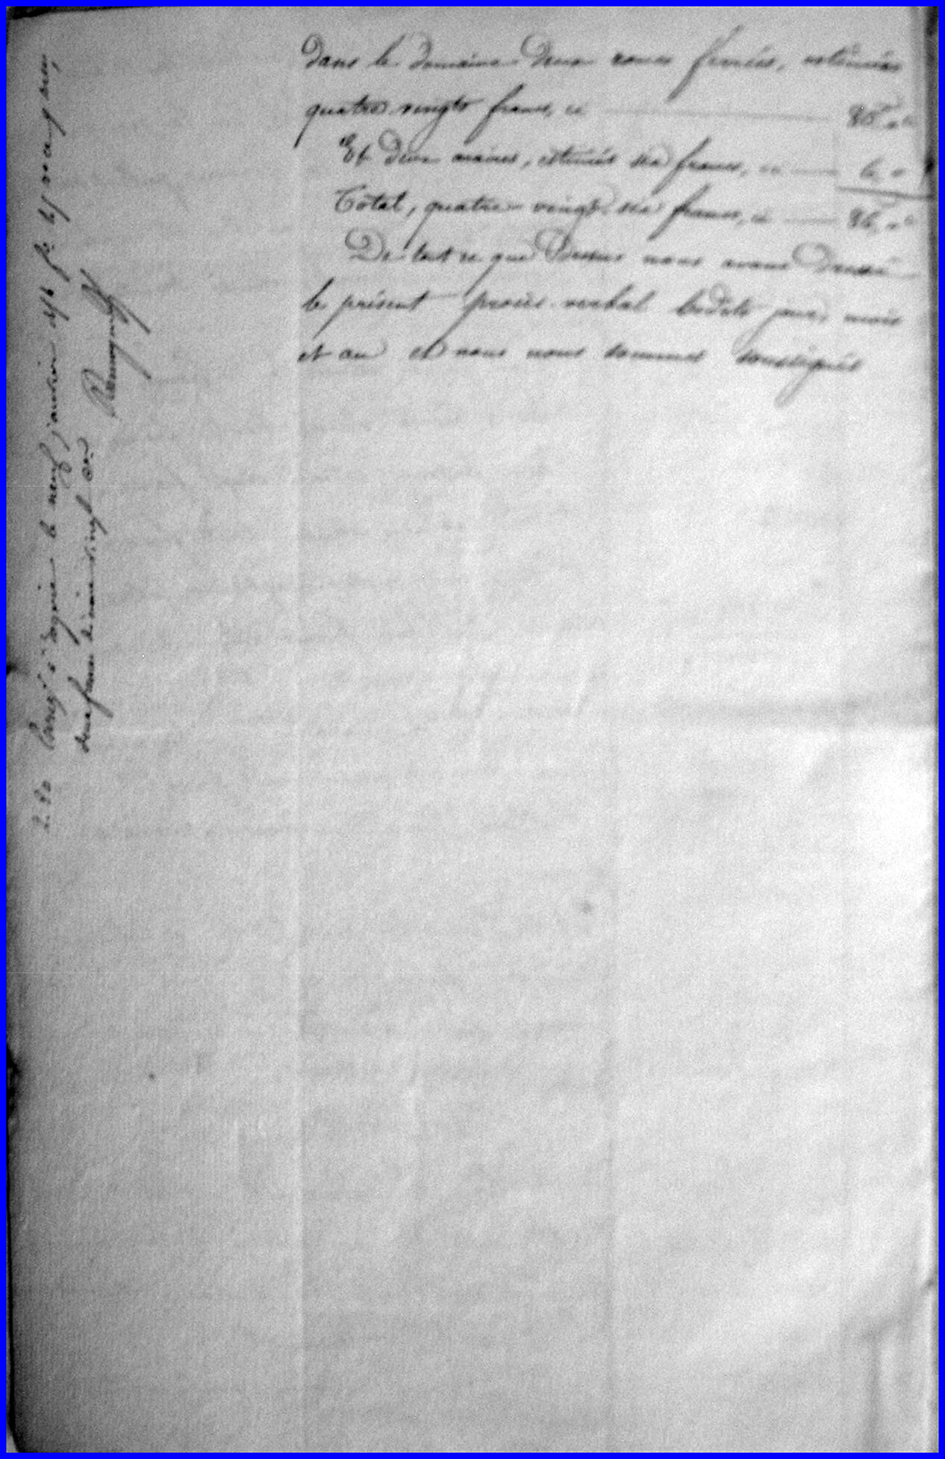 dans le domaine Deux roues ferrées, estimées
quatre vingts francs, ci 80.
Et deux araires, estimés six francs, ci 6
Total, quatre vingt six francs, ci 86.
De tout ce que Dessus nous avons Dressé
le présent procès verbal lesdits jour, mois
et an et nous nous sommes soussignés
2.20 Enregé à le neuf janvier
deux francs décime vingt ces